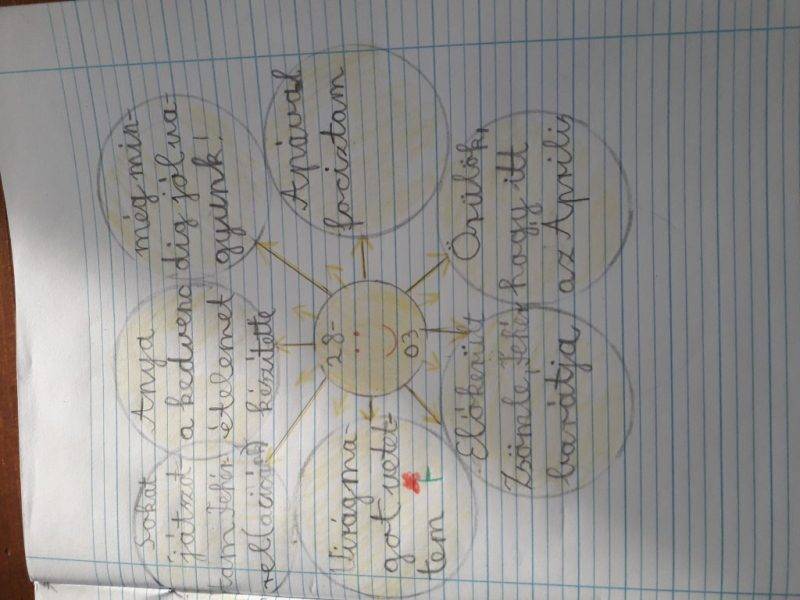 Sokat
játszot
tam Fehér-
Anya
a kedvenc
ételemet
készítette
még min-
dig jól va-
gyunk!
Virágma-
got vetet=
tem
28-
03
Apával
fociztam
Előkerült
Zsömle, Fehér
barátja
Örülök,
hogy itt
az Április